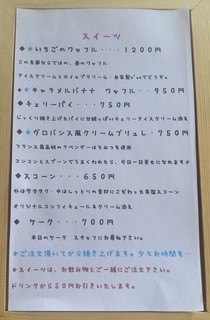 スイーツ
◆★いちごのワッフル・・・１２００円
この季節ならではの、春のワッフル
アイスクリームとホイップクリーム・自家製
◆★キャラメルバナナ ワッフル・・９５０円
◆チェリーパイ・・・７５０円
じっくり焼き上げたパイに甘酸っぱいチェリーアイスクリーム添え
◆★プロバンス風クリームブリュレ・７５０円
フランス最高級のラベンダーはちみつを使用
コンコンとスプーンでうまくわれたら、今日一日幸せになれますよ
◆スコーン・・・６５０円
外はサクサク・中はしっとりの素材にこだわった専門スコーン
オリジナルコンフィチュール＆クリーム添え
◆ ケーク・・・７００円
本日のケーク スタッフにお尋ね下さい。
★ご注文頂いてから焼き上げます。少々お時間を…
★スイーツは、お飲み物とご一緒にご注文下さい。
ドリンクから５０円お引きいたします。